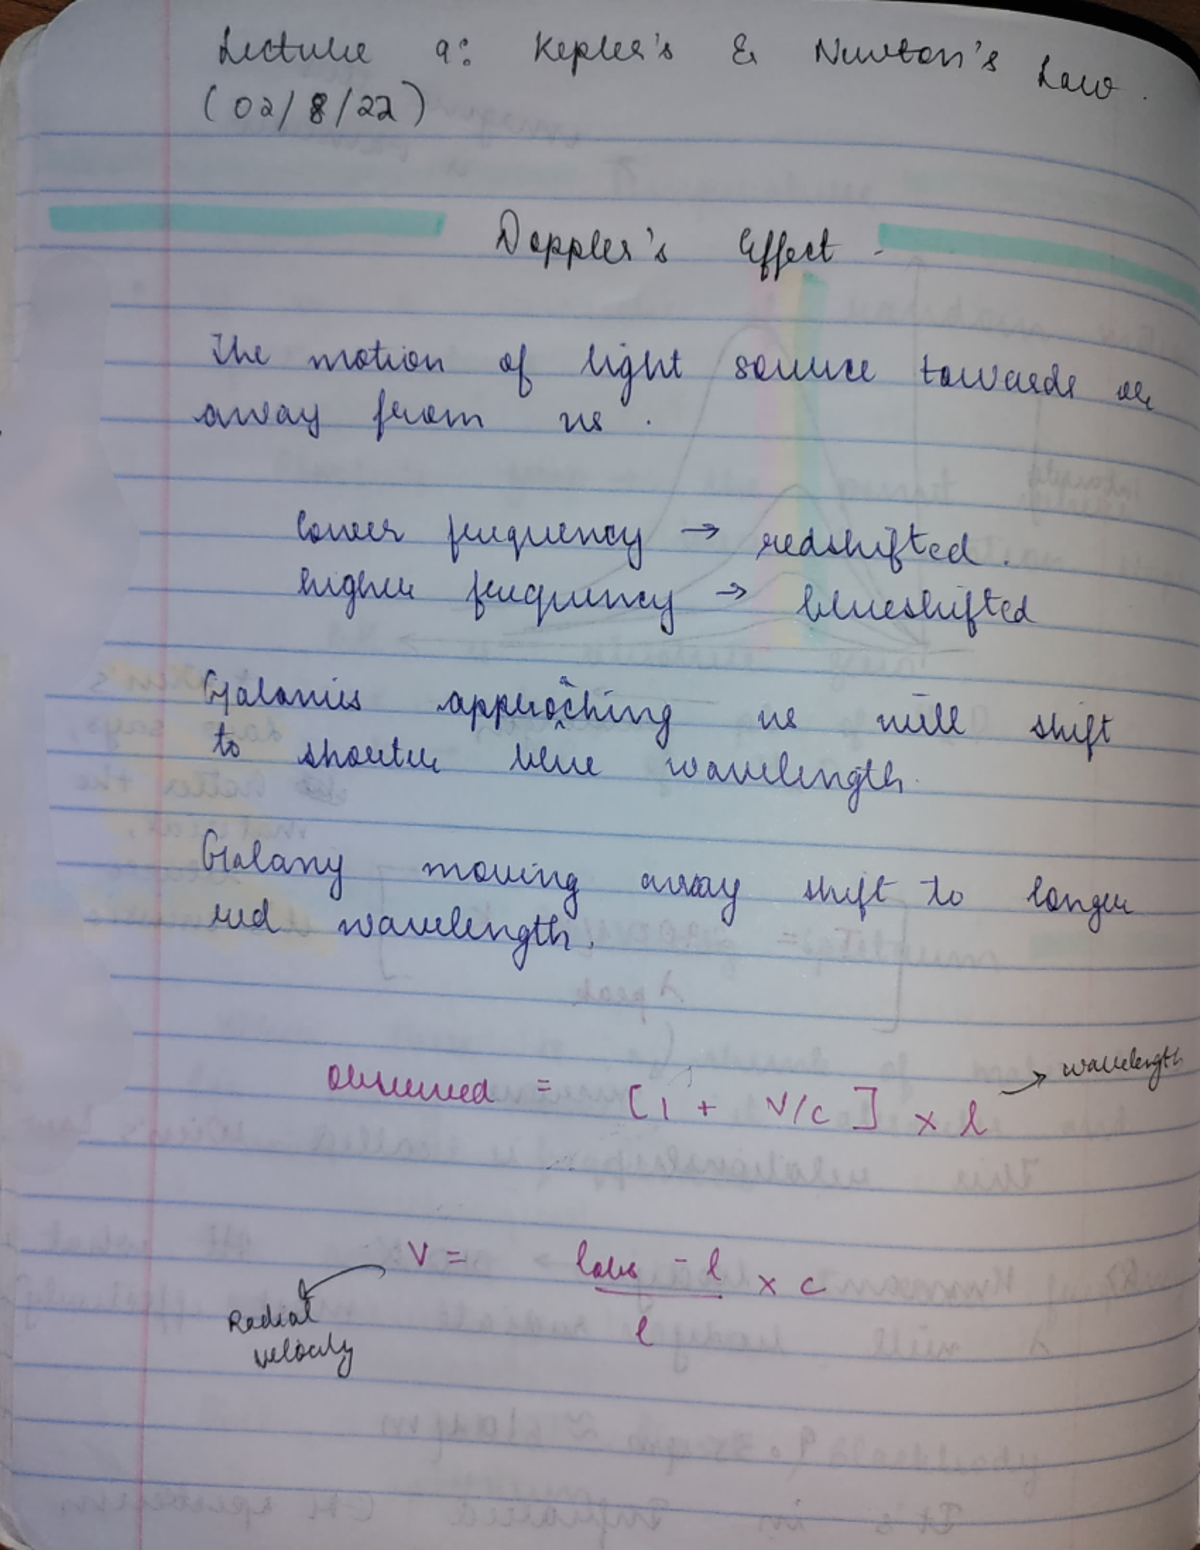 Lecture 9: Kepler's & Newton's Law.
(02/8/22)
Doppler's Effect -
The motion of light source towards or
away from us.
lower frequency → redshifted.
higher frequency → blueshifted
Galaxies approaching us will shift
to shorter blue wavelength.
Galaxy moving away shift to longer
red wavelength.
observed = [1 + V/c] × l → wavelength
V = lobs - l × c
l
Radial
velocity